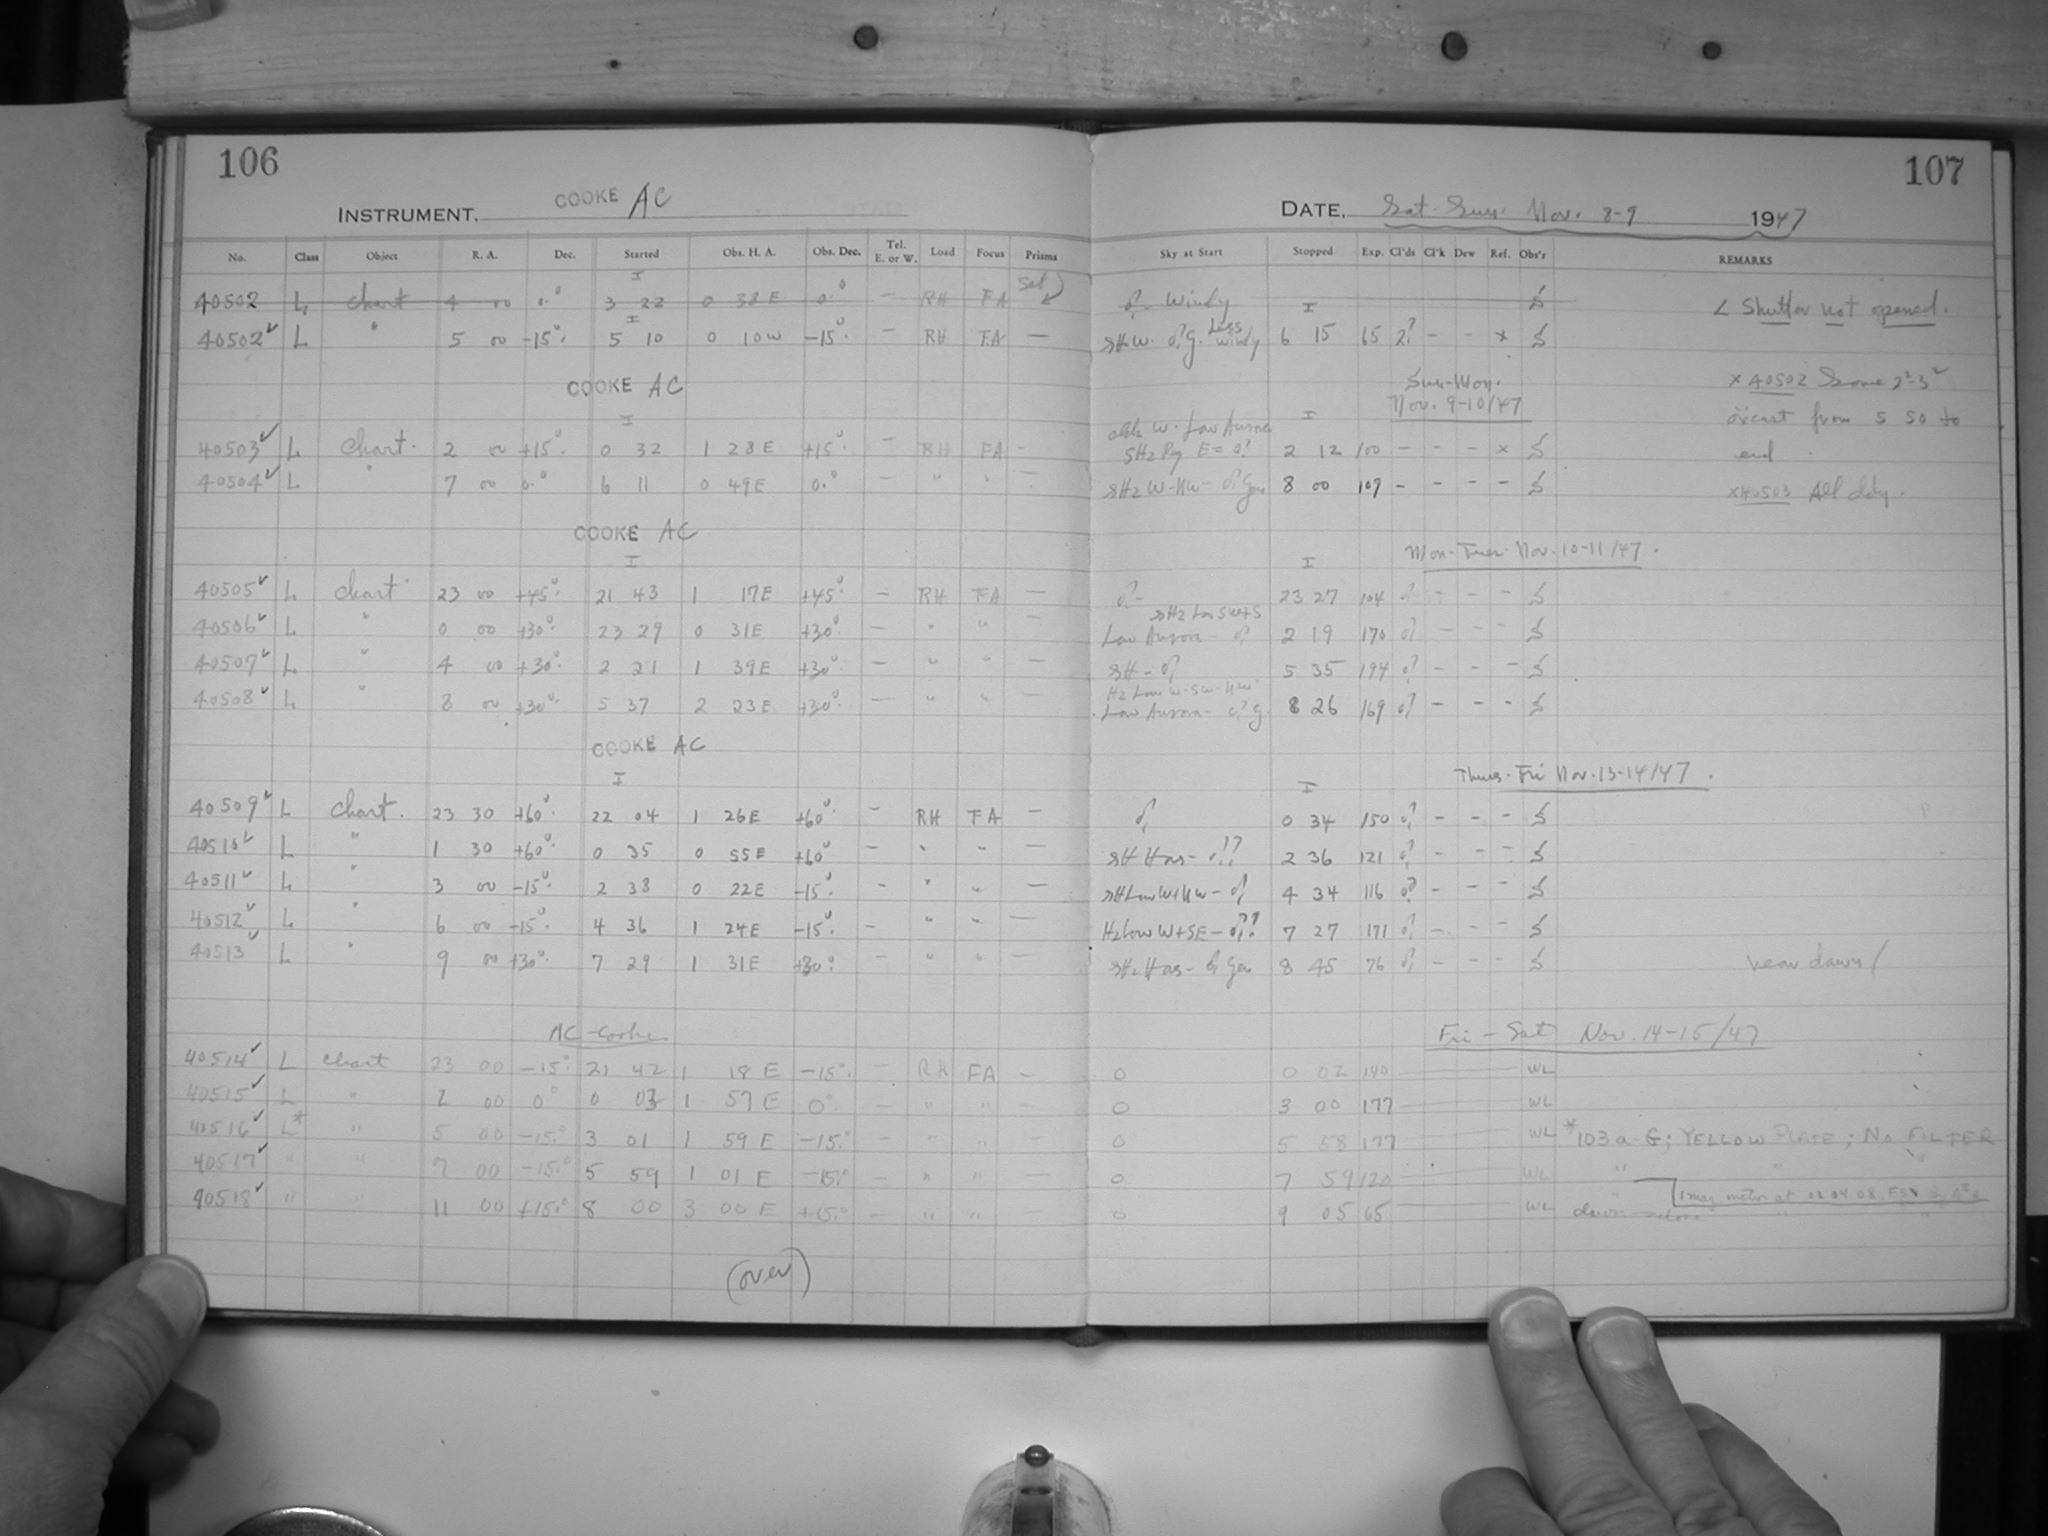 106
107
INSTRUMENT, COOKE AC
DATE, Sat-Sun. Nov. 8-9 1947
No. Class Object R. A. Dec. Started Obs. H. A. Obs. Dec. Tel. E. or W. Load Focus Prisms Sky at Start Stopped Exp. Cl'ds Cl'k Dew Ref. Obs'r REMARKS
I
40502 L chart 4 00 0° 3 22 0 38 E 0° — RH FA Set Windy < Shutter not opened.
I I
40502 L " 5 00 -15° 5 10 0 10 W -15° — RH FA — SHW. G. Less windy 6 15 65 2? - - x
COOKE AC
Sun-Mon. Nov. 9-10/47
x 40502 Some
I I
40503 L chart. 2 00 +15° 0 32 1 28 E +15° — RH FA - W. Low Aurora SHz E= 2 12 100 - - - x
from 5 50 to end
40504 L " 7 00 0° 6 11 0 49 E 0° - " " - SHz W-NW- 8 00 109 - - - -
x40503 All cldy.
COOKE AC
Mon-Tues. Nov. 10-11/47.
I I
40505 L chart 23 00 +45° 21 43 1 17 E +45° — RH FA — 23 27 104 - - -
40506 L " 0 00 +30° 23 29 0 31 E +30° — " " — SHz Low SW+S Low Aurora - 2 19 170 - - -
40507 L " 4 00 +30° 2 21 1 39 E +30° — " " — SH- 5 35 194 - - -
40508 L " 8 00 +30° 5 37 2 23 E +30° — " " — Hz Low W-SW-NW. Low Aurora- G. 8 26 169 - - -
COOKE AC
Thurs-Fri Nov. 13-14/47.
I I
40509 L chart. 23 30 +60° 22 04 1 26 E +60° — RH FA — 0 34 150 - - -
40510 L " 1 30 +60° 0 35 0 55 E +60° - " " — SH Has- 2 36 121 - - -
40511 L " 3 00 -15° 2 38 0 22 E -15° - " " — SH Low W+NW- 4 34 116 - - -
40512 L " 6 00 -15° 4 36 1 24 E -15° - " " — Hz low W+SE- 7 27 171 - - -
40513 L " 9 00 +30° 7 29 1 31 E +30° - " " — SHz Has- Gen 8 45 76 - - - near dawn
AC-Cooke
Fri-Sat Nov. 14-15/47
40514 L chart 23 00 -15° 21 42 1 18 E -15° — RH FA - 0 0 02 140 WL
40515 L " 2 00 0° 0 03 1 57 E 0° — " " - 0 3 00 177 WL
40516 L* " 5 00 -15° 3 01 1 59 E -15° — " " - 0 5 58 177 WL *103a-G; YELLOW PLATE; NO FILTER
40517 " " 7 00 -15° 5 59 1 01 E -15° — " " - 0 7 59 120 WL " " "
40518 " " 11 00 +15° 8 00 3 00 E +15° — " " - 0 9 05 65 WL " 1 mag meteor at 02 04 08
dawn " "
(over)